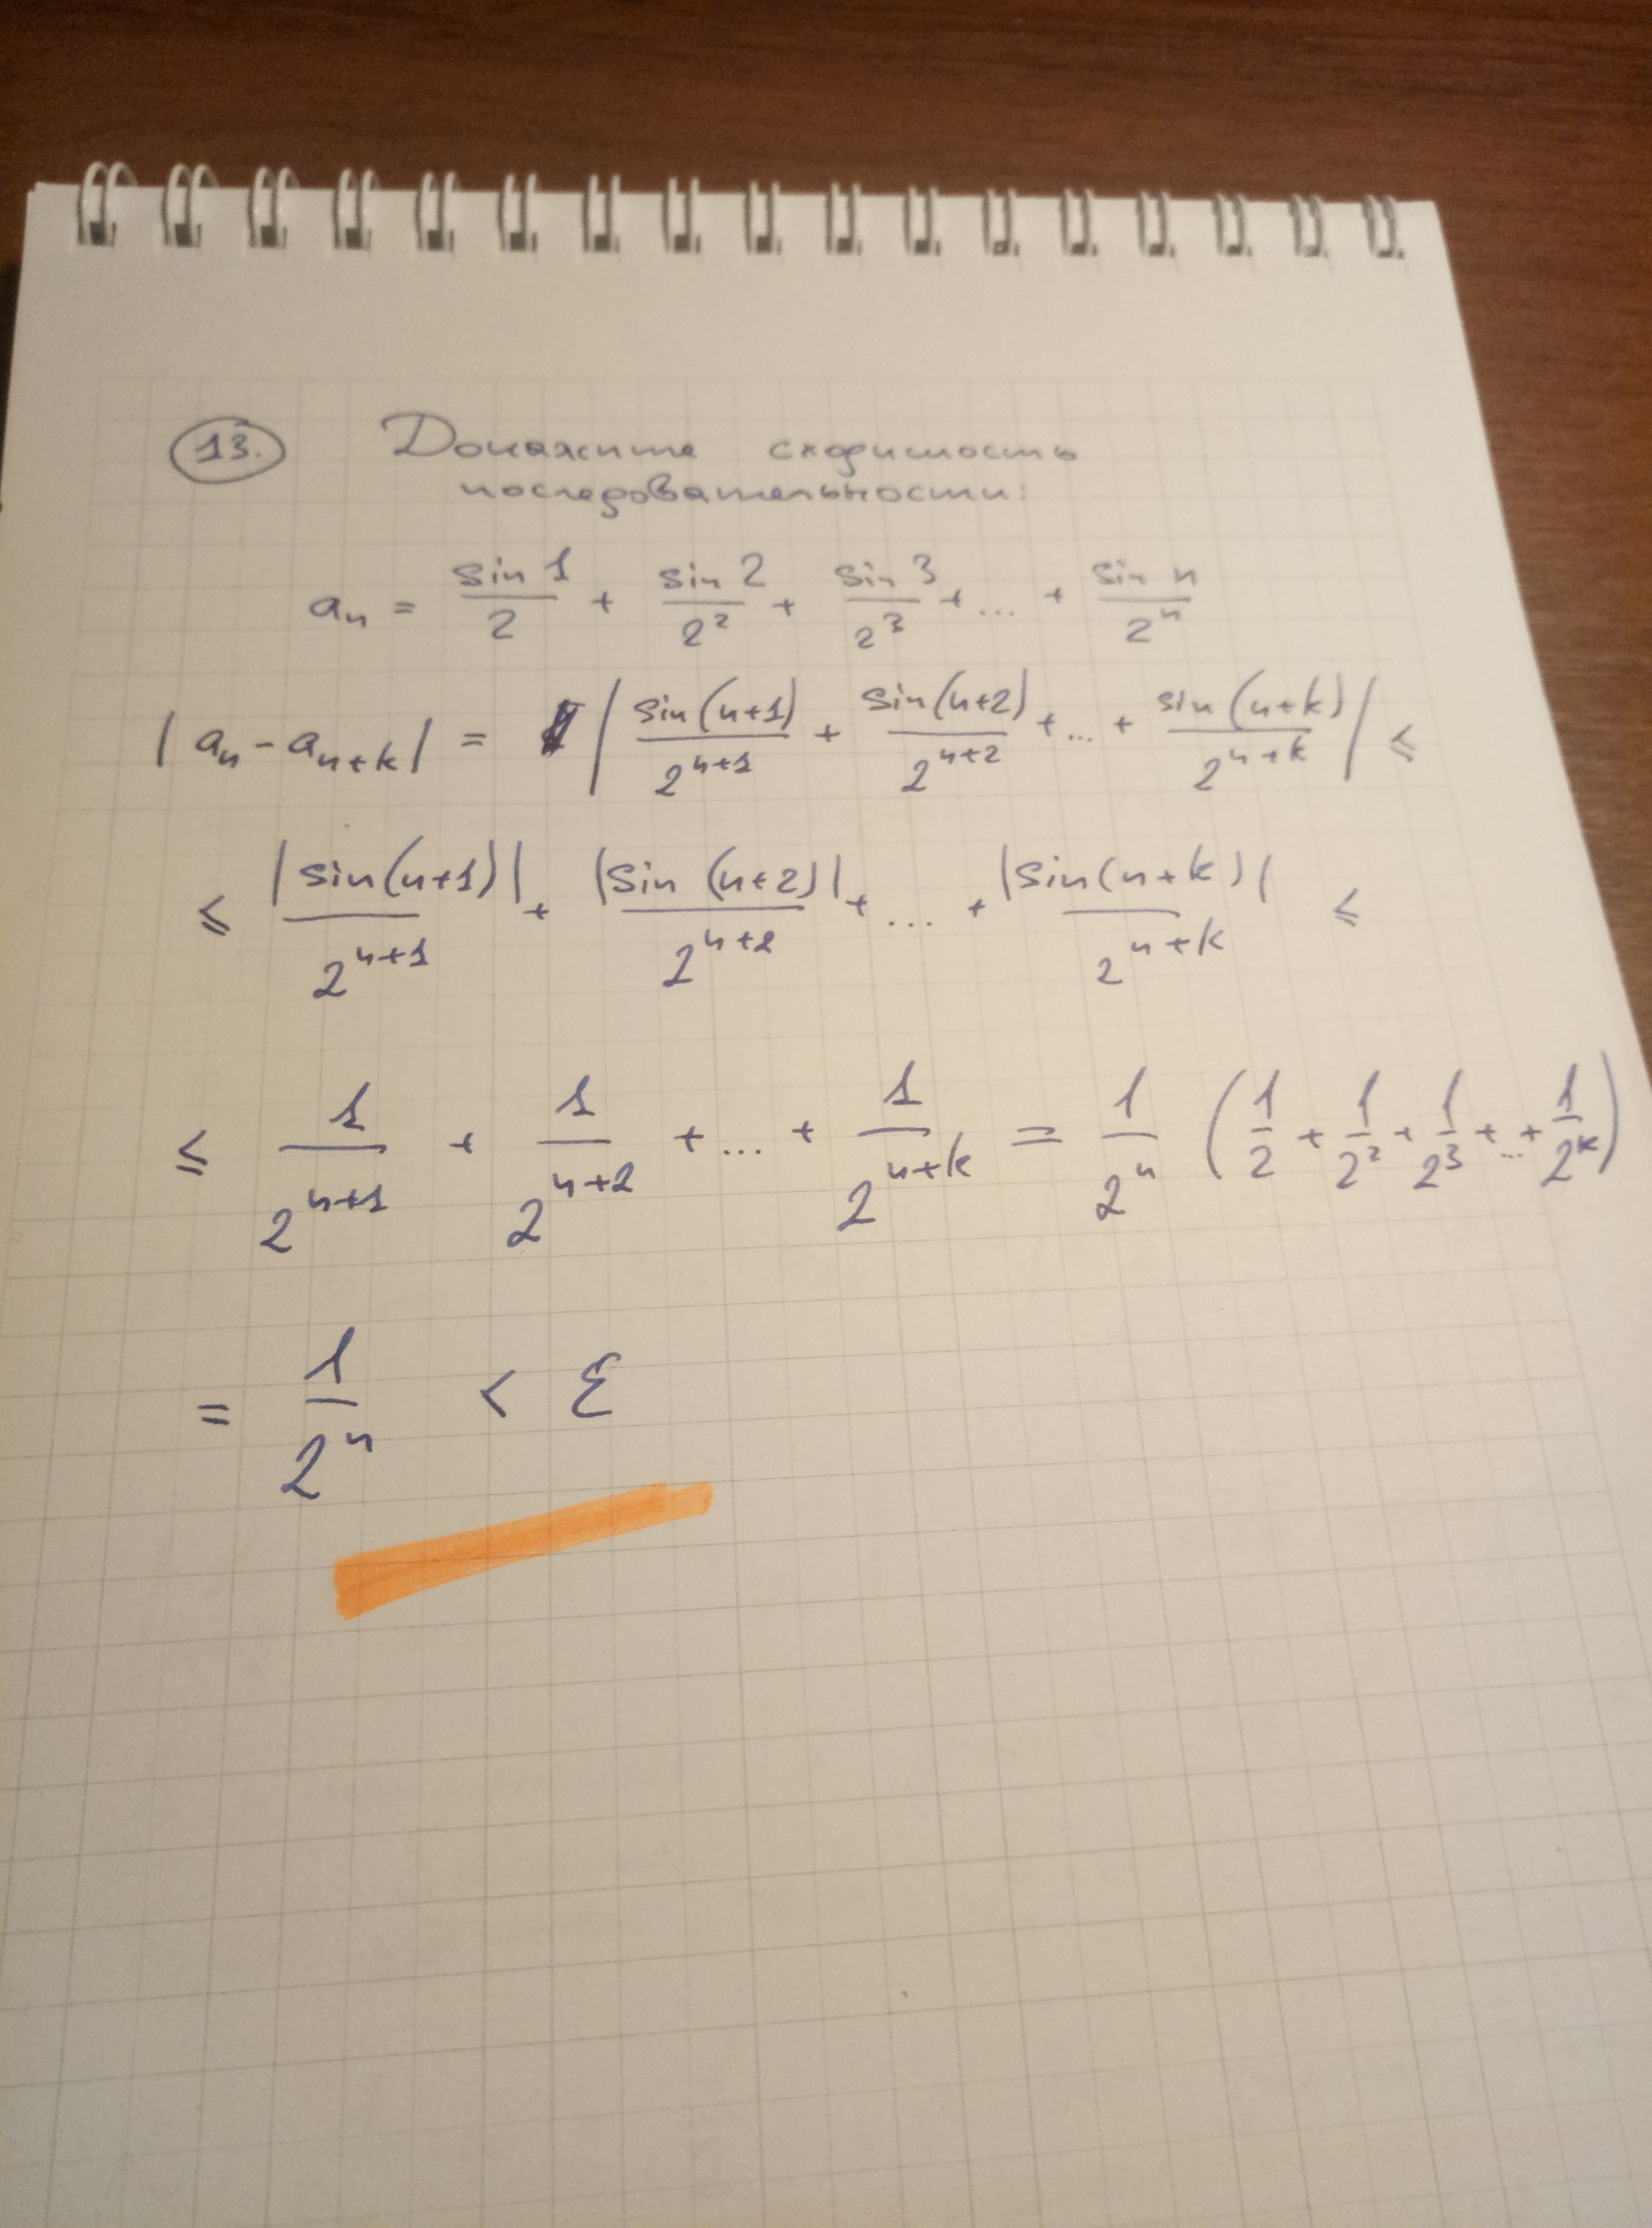 13. Докажите сходимость
последовательности:
aₙ = sin 1/2 + sin 2/2² + sin 3/2³ + ... + sin n/2ⁿ
|aₙ - aₙ₊ₖ| = |sin(n+1)/2ⁿ⁺¹ + sin(n+2)/2ⁿ⁺² + ... + sin(n+k)/2ⁿ⁺ᵏ| ⩽
⩽ |sin(n+1)|/2ⁿ⁺¹ + |sin(n+2)|/2ⁿ⁺² + ... + |sin(n+k)|/2ⁿ⁺ᵏ ⩽
⩽ 1/2ⁿ⁺¹ + 1/2ⁿ⁺² + ... + 1/2ⁿ⁺ᵏ = 1/2ⁿ (1/2 + 1/2² + 1/2³ + ... + 1/2ᵏ)
= 1/2ⁿ < ε